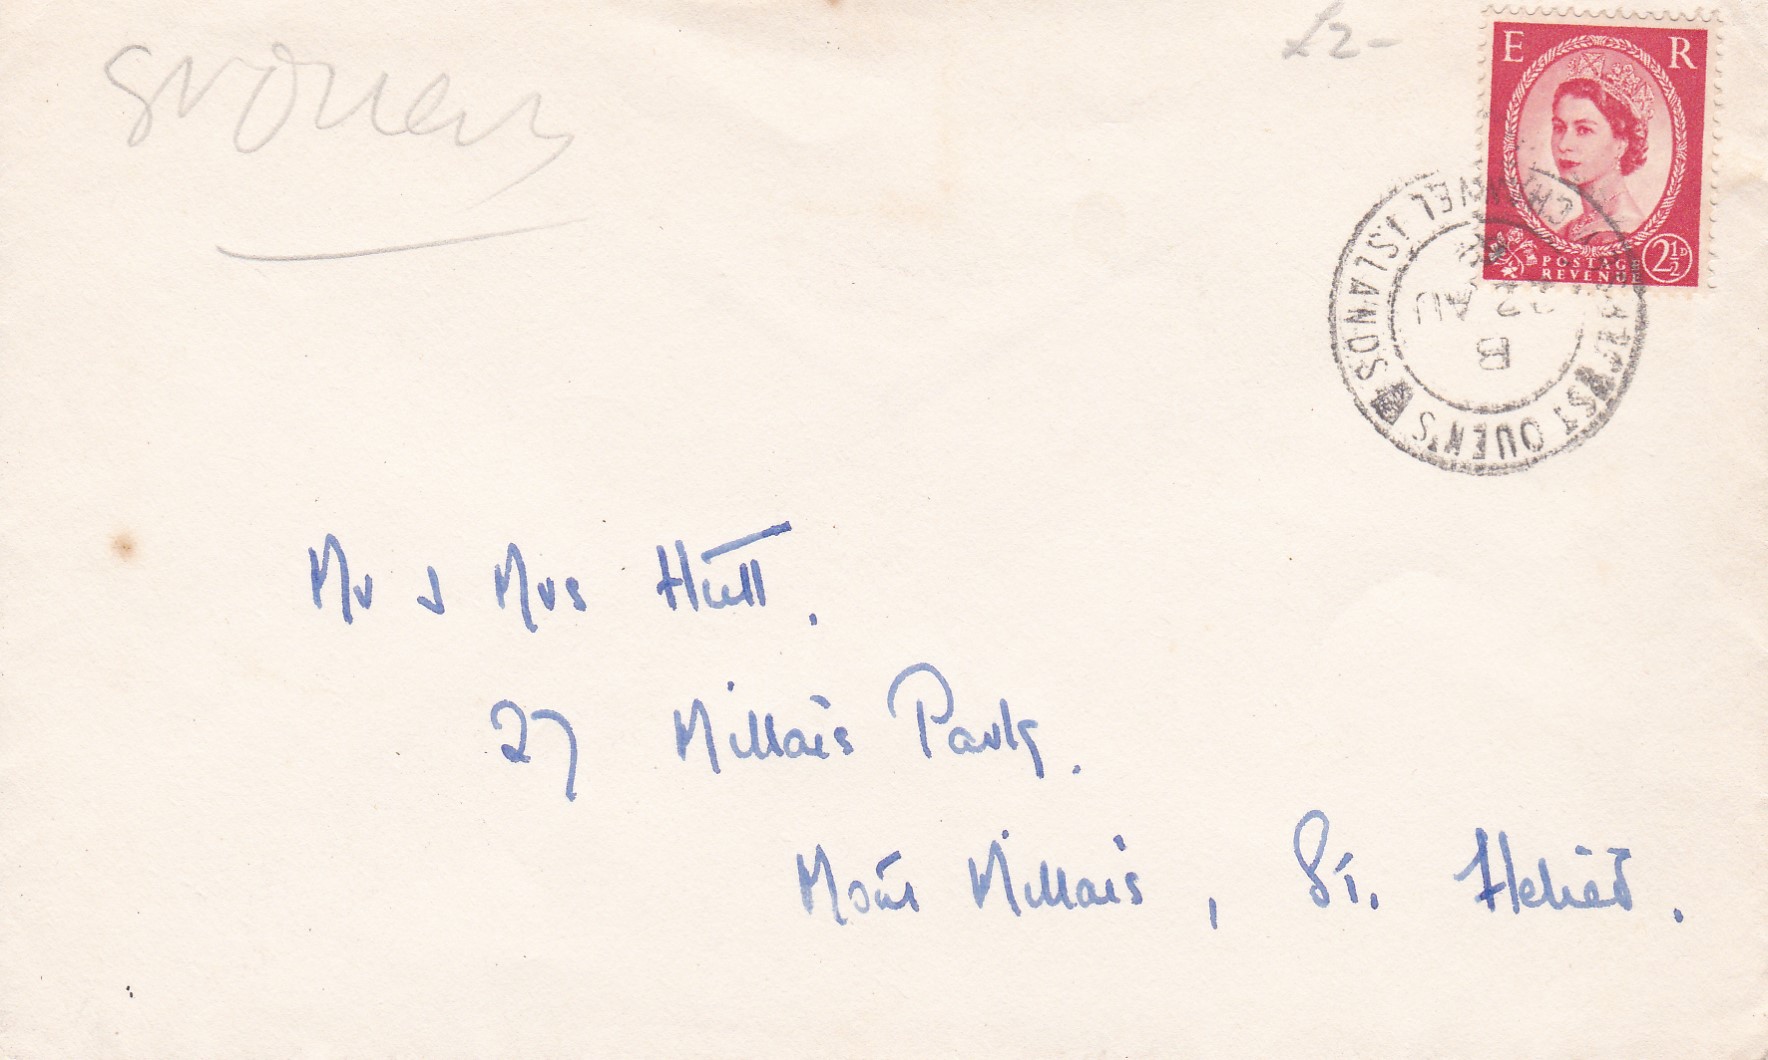 St Ouens
£2-
E R
POSTAGE
REVENUE
2½D
ST OUEN'S
CHANNEL ISLANDS
B
22 AU
Mr & Mrs Hutt.
27 Millais Park.
Mont Millais, St. Helier.